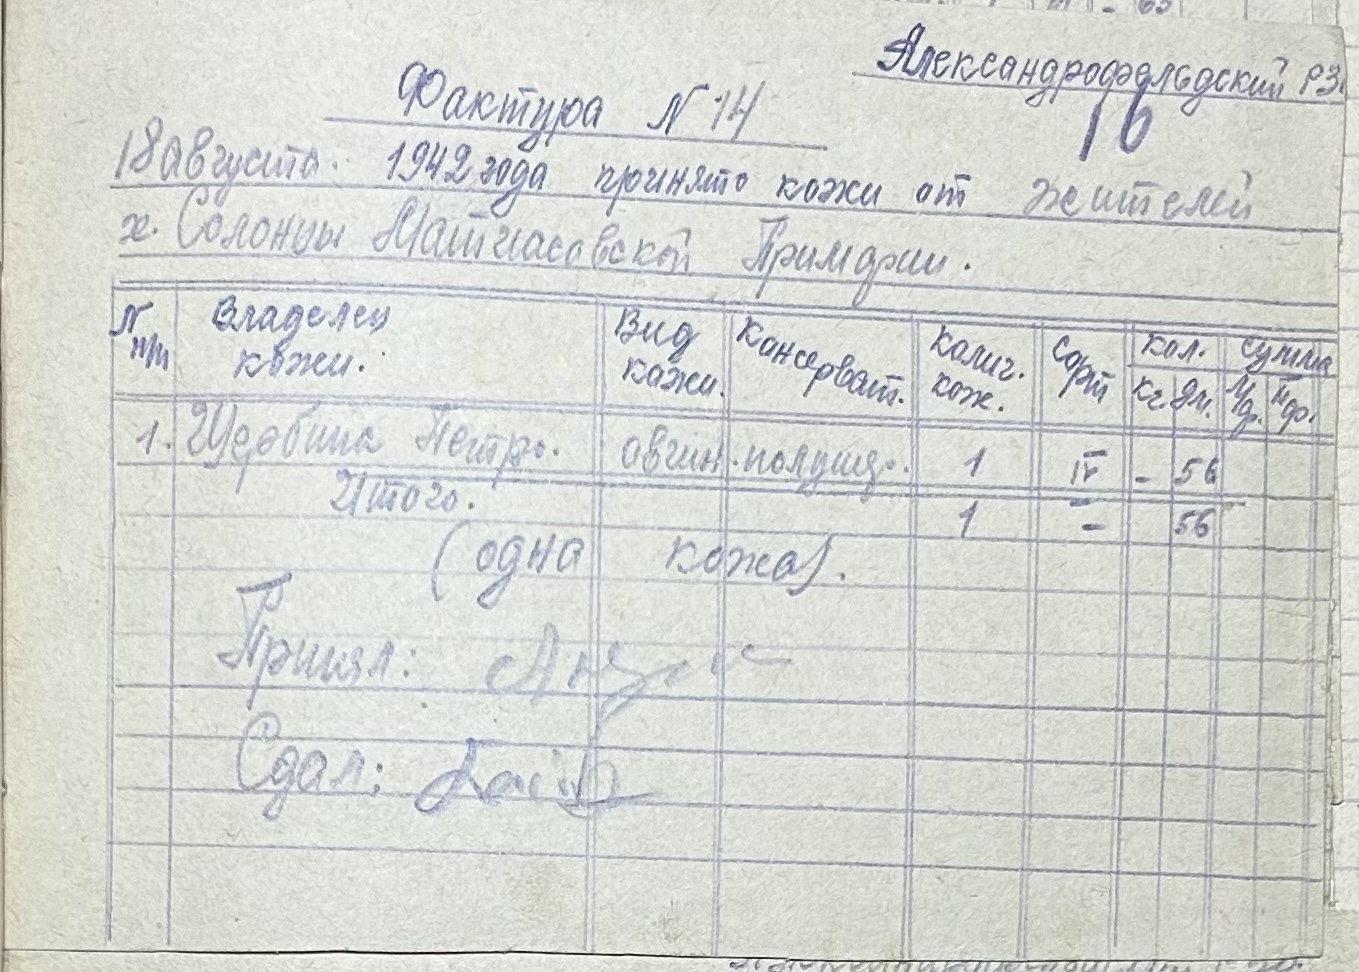 Александрофельдский РЗ
16
Фактура N 14
18 августа. 1942 года принято кожи от жителей
х. Солонцы Матиасовской Примэрии.
N п/п Владелец кожи. Вид кожи. Консерват. колич. кож. сорт кол. кг. дм. сумма
1. Петро. овчин. 1 IV - 56
Итого. 1 - 56
(одна кожа).
Принял:
Сдал: